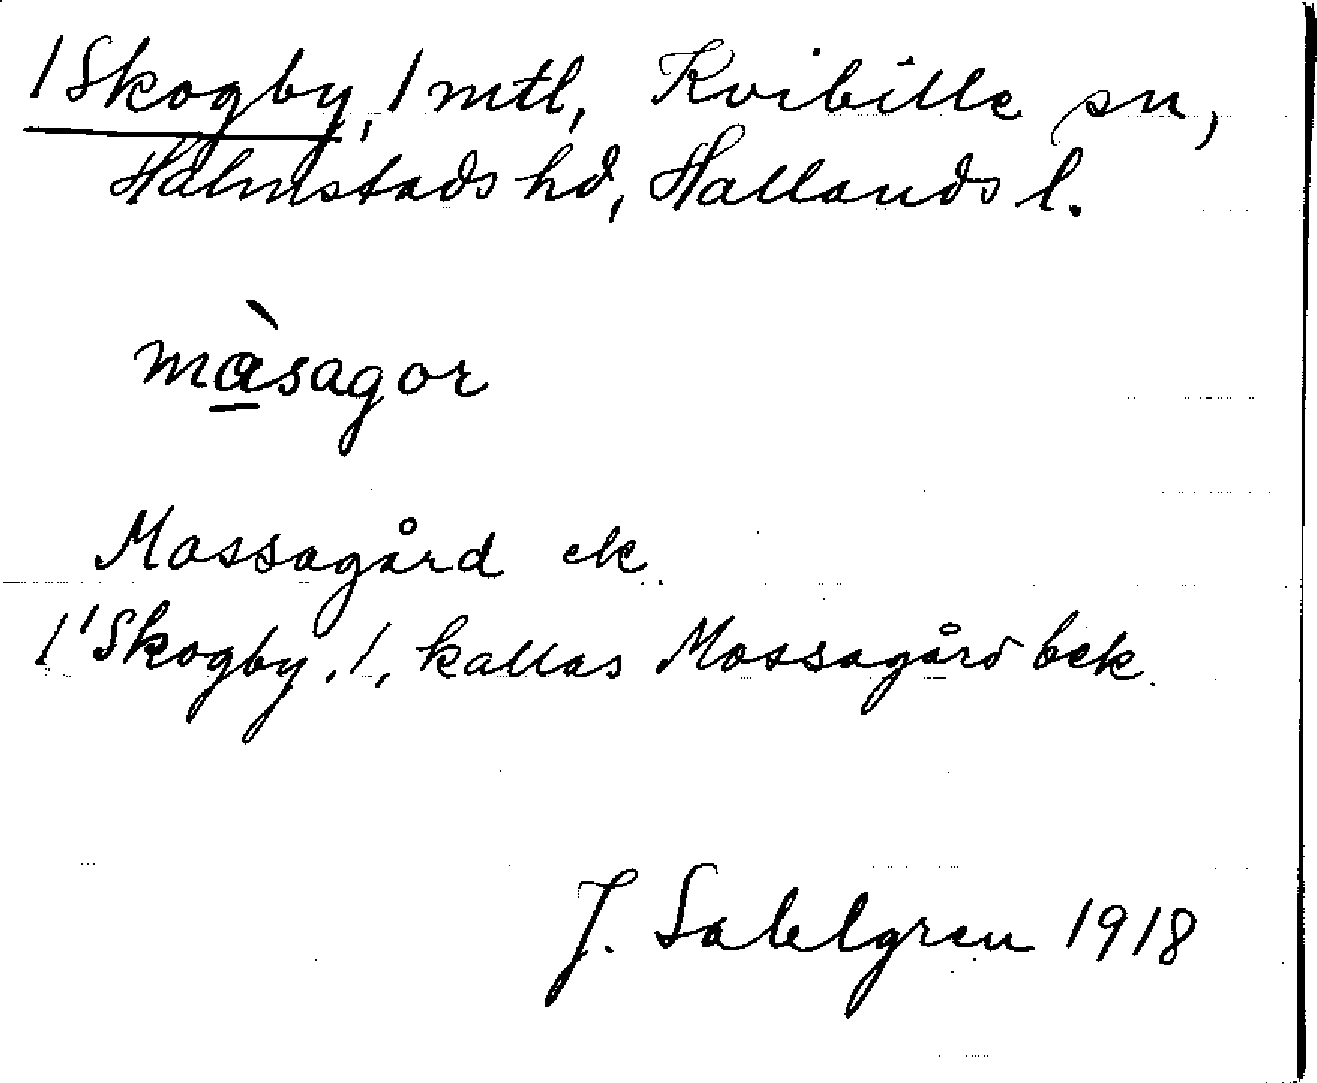 1 Skogby, 1 mtl, Kvibille sn,
Halmstads hd, Hallands l.
màsagor
Mossagård ek.
1 Skogby, 1, kallas Mossagård bek.
J. Sahlgren 1918